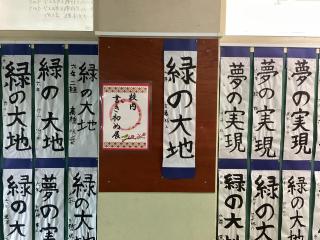 緑の大地
緑の大地
緑の大地
緑の大地
夢の実現
緑の大地
校内
書き初め展
緑の大地
夢の実現
夢の実現
夢の実現
緑の大地
緑の大地
緑の大地